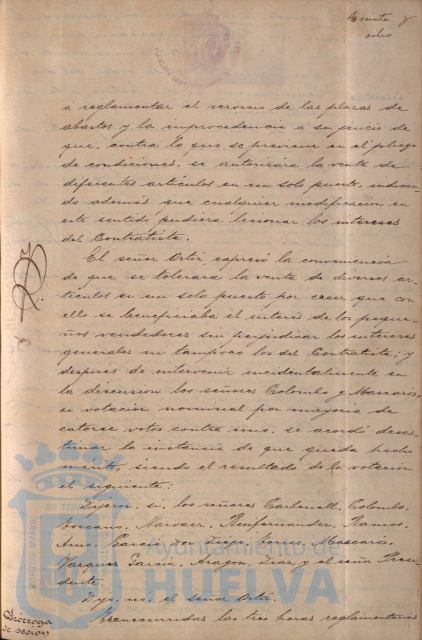 treinta y
ocho
á reglamentar el servicio de las plazas de
abastos y la improcedencia á su juicio de
que, contra lo que se previene en el pliego
de condiciones, se autorizára la venta de
diferentes artículos en un solo puesto, indican-
do además que cualquier modificacion en
este sentido pudiera lesionar los intereses
del Contratista.
El señor Ortiz expresó la conveniencia
de que se tolerara la venta de diversos ar-
tículos en un solo puesto por creer que con
ello se beneficiaba el interés de los peque-
ños vendedores sin perjudicar los intereses
generales ni tampoco los del Contratista; y
despues de intervenir incidentalmente en
la discusion los señores Colombo y Mascarós,
en votacion nominal por mayoría de
catorce votos contra uno, se acordó deses-
timar la instancia de que queda hecho
mérito, siendo el resultado de la votacion
el siguiente:
Dijeron, sí, los señores Carbonell, Colombo,
Narvaez, Ramos,
García Mascarós,
Vazquez García, Aragon, Diaz y el señor Presi-
dente.
Dijo, no, el señor Ortiz.
Prórroga
de sesión
Transcurridas las tres horas reglamentarias
PORTUS MARIS
Ayuntamiento de
HUELVA